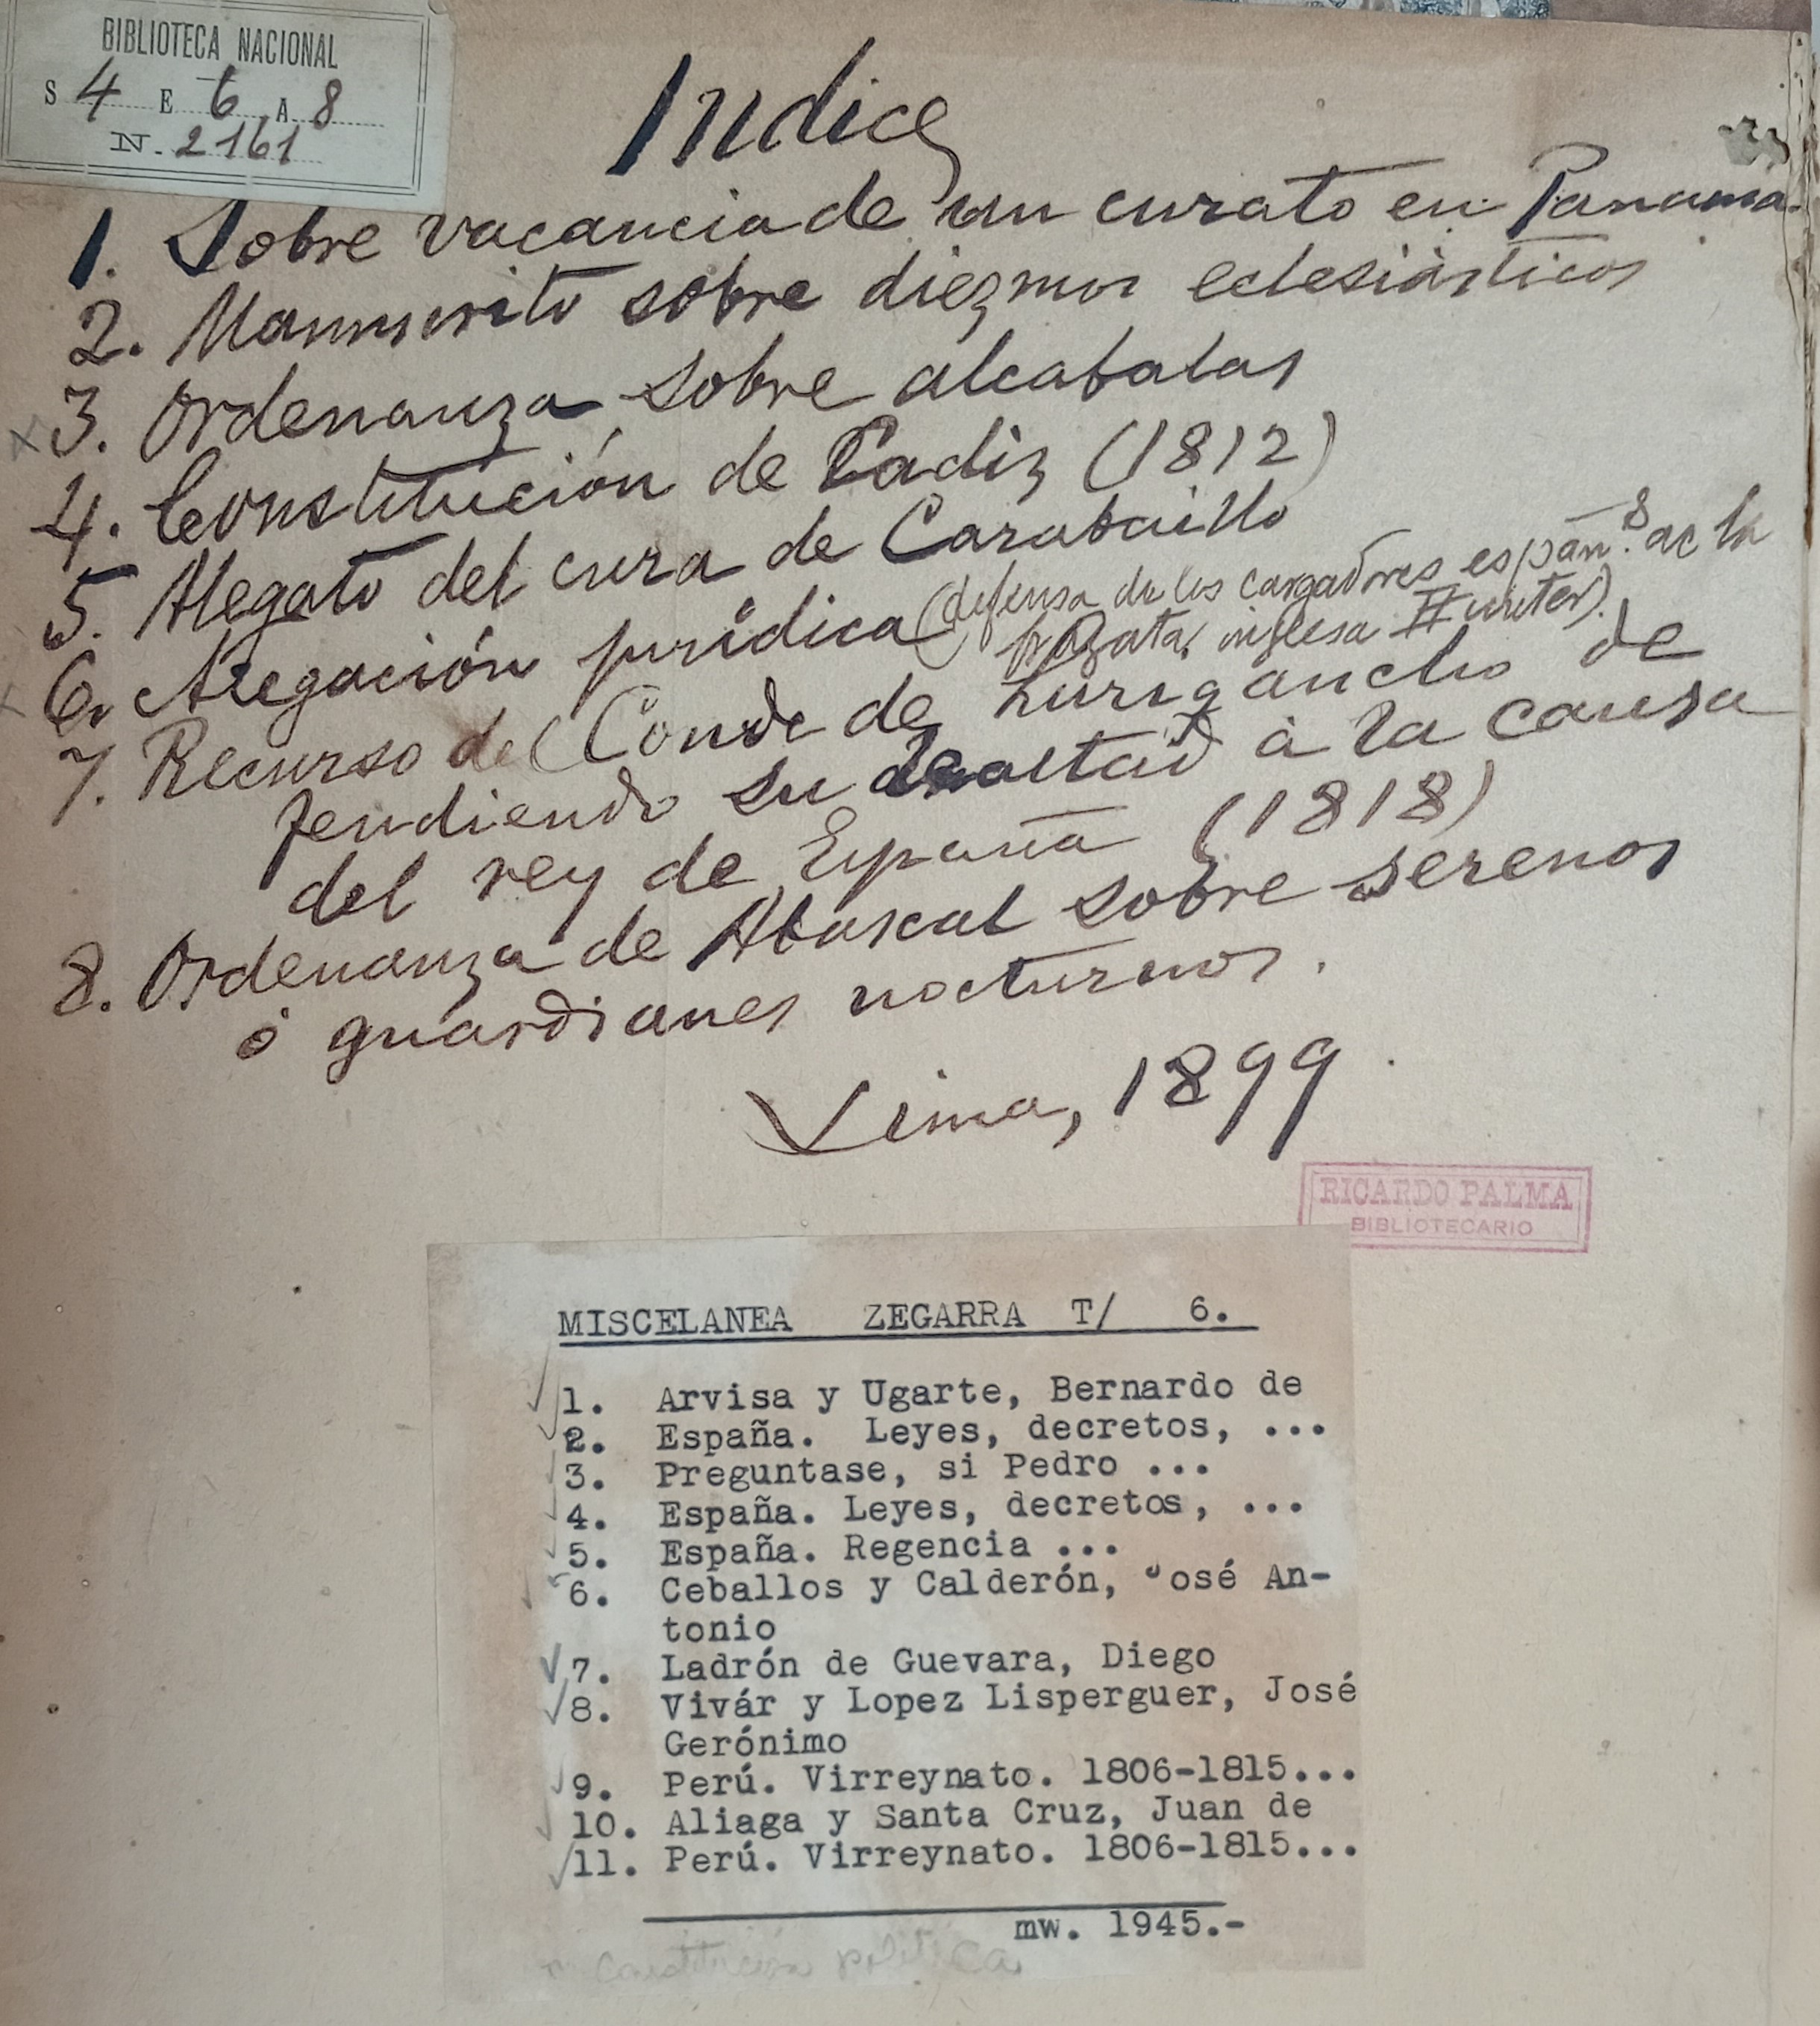 BIBLIOTECA NACIONAL
S 4 E 6 A 8
N. 2161
Indice
1. Sobre vacancia de un curato en Panamá.
2. Manuscrito sobre diezmos eclesiásticos
x 3. Ordenanza sobre alcabalas
4. Constitución de Cadiz (1812)
5. Alegato del cura de Carabaillo
x 6. Alegación juridica (defensa de los cargadores españ.s de la
fragata inglesa Hunter).
7. Recurso del Conde de Lurigancho de
fendiendo su lealtad à la causa
del rey de España (1818)
8. Ordenanza de Abascal sobre serenos
ó guardianes nocturnos.
Lima, 1899.
RICARDO PALMA
BIBLIOTECARIO
MISCELANEA ZEGARRA T/ 6.
1. Arvisa y Ugarte, Bernardo de
2. España. Leyes, decretos, ...
3. Preguntase, si Pedro ...
4. España. Leyes, decretos, ...
5. España. Regencia ...
6. Ceballos y Calderón, José An-
tonio
7. Ladrón de Guevara, Diego
8. Vivár y Lopez Lisperguer, José
Gerónimo
9. Perú. Virreynato. 1806-1815...
10. Aliaga y Santa Cruz, Juan de
11. Perú. Virreynato. 1806-1815...
mw. 1945.-
Constitucion politica